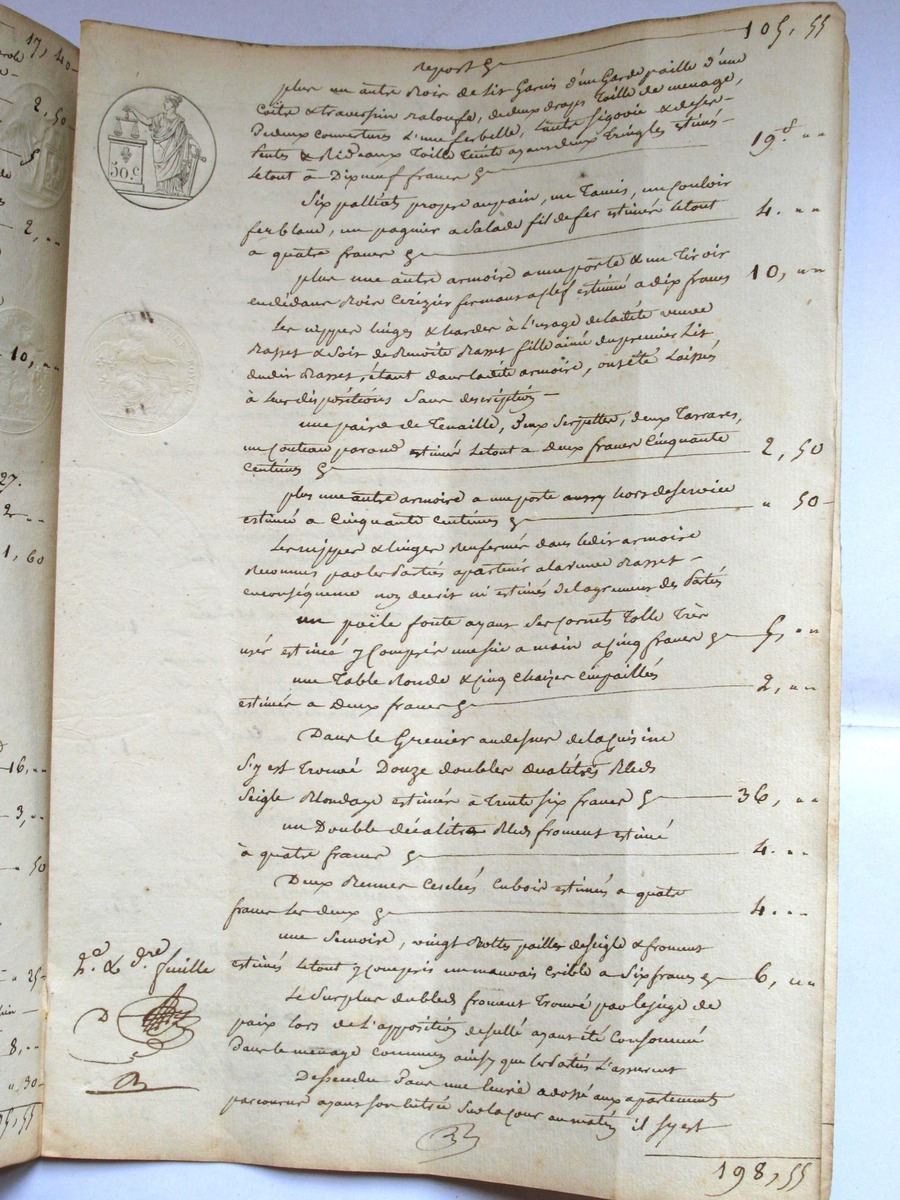 report 105,55
plus un autre bois de lit garni d'un garde paille d'une
coite & traversin baloufe, de deux draps toille de menage,
de deux couvertures l'une serbelle, l'autre sigovie & deser-
tentes & rideaux toille teinte ayant deux tringles estimés
le tout à dix neuf francs 19 "
Six palliats propre au pain, un tamis, un couloir
ferblanc, un pagnier a salade fil de fer estimés le tout
à quatre francs 4. "
plus une autre armoire a une porte & un tiroir
en dedans bois cerizier fermant a clef estimé a dix francs 10, "
Les nippes linges & hardes à l'usage de ladite veuve
Rasset & soit de Rasset fille ainé du premier lit
dudit Rasset, étant dans ladite armoire, ont été laissés
à leur dispositions sans description
une paire de tenaille, deux serpettes, deux tarrares,
un couteau parand estimés le tout a deux francs cinquante
centimes 2, 50
plus une autre armoire a une porte aussy hors de service
estimée a cinquante centimes " 50
Les nippes & linges renfermés dans ledit armoire
reconnus par les parties apartenir a la veuve Rasset
en conséquence non decrit ni estimés de l'agrement des parties
un poële fonte ayant ses cornets tolle très
usés estimé y compris une sie a main a cinq francs 5 "
une table ronde & cinq chaizes empaillés
estimés a deux francs 2, "
Dans le grenier au desus de la cuisine
s'y est trouvé douze doubles décalitres bleds
seigle blondage estimés à trente six francs 36, "
un double décalitre bleds froment estimé
à quatre francs 4. "
Deux bennes cerclées en bois estimés a quatre
francs les deux 4 "
une semoire, vingt bottes pailles de seigle & froment
estimés le tout y compris un mauvais crible a six francs 6, "
Le surplus du bleds froment trouvé par le juge de
paix lors de l'apposition de scellé ayant été consommé
dans le menage commun ainsy que les partis l'assurent
Dessendu dans une écurie adossé aux apartements
parcourus ayant son entrée sur la cour au matin il s'y est
198,55
50.c
2.e & d.re feuille
17, 40
2, 50
5
2, "
10, "
27.
2 "
1, 60
16, "
3, "
50
" 25
8, "
" 30